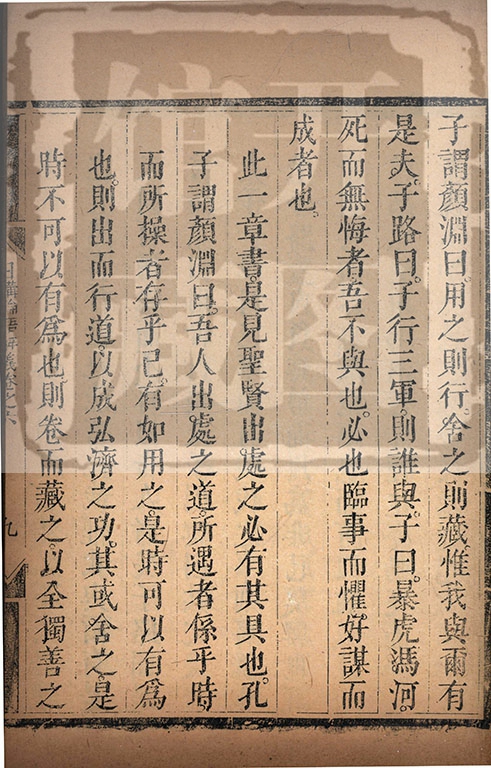 子謂顏淵曰。用之則行。舍之則藏。惟我與爾有
是夫。子路曰。子行三軍。則誰與。子曰。暴虎馮河。
死而無悔者。吾不與也。必也臨事而懼。好謀而
成者也。
此一章書。是見聖賢出處之必有其具也。孔
子謂顏淵曰。吾人出處之道。所遇者係乎時。
而所操者存乎己。有如用之。是時可以有爲
也。則出而行道。以成弘濟之功。其或舍之。是
時不可以有爲也。則卷而藏之。以全獨善之
日講論語解義卷之六
九